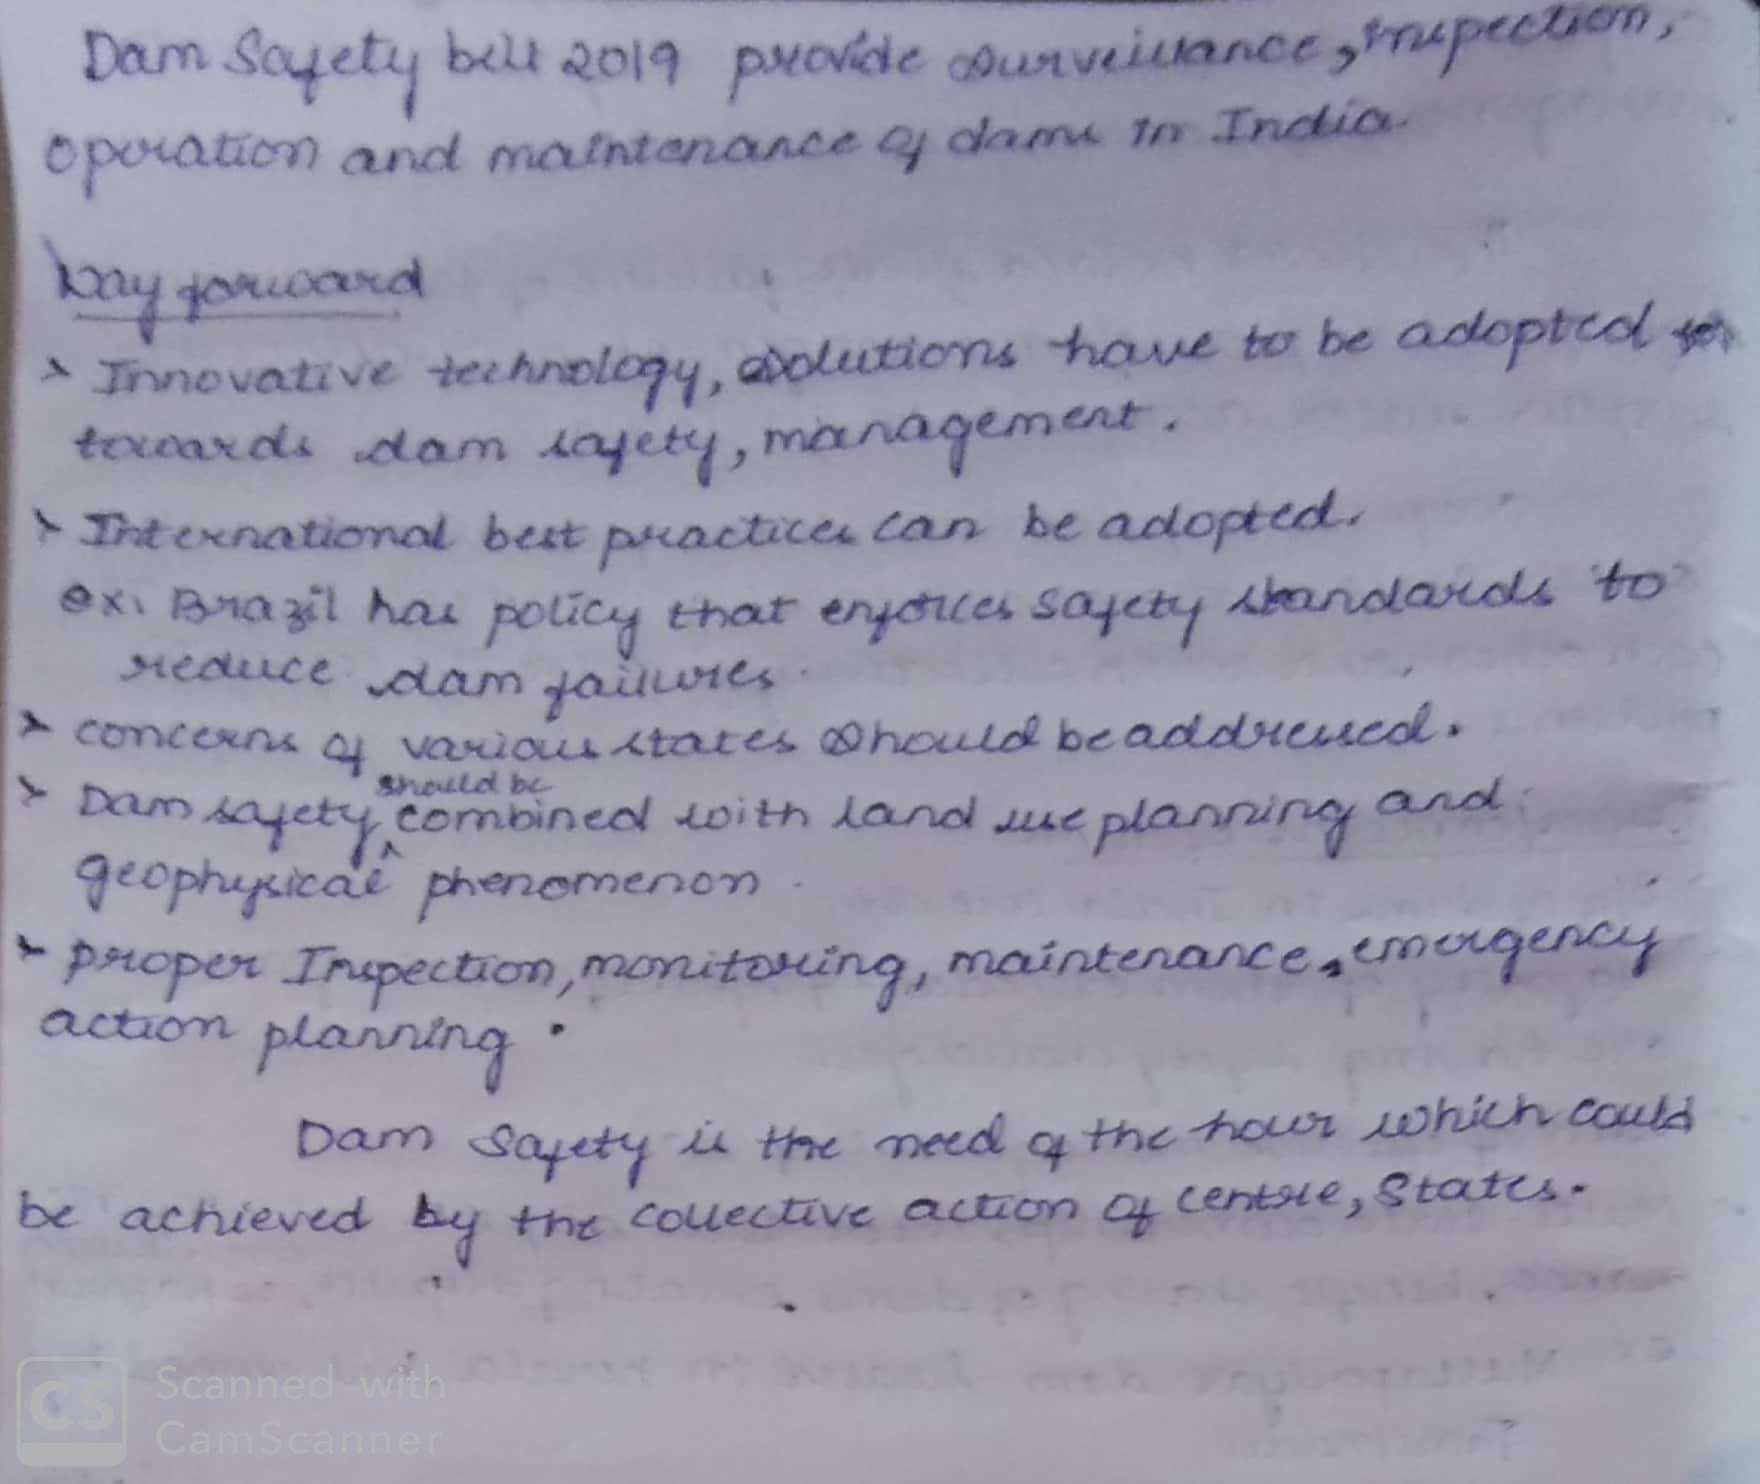 Dam Safety bill 2019 provide surveillance, inspection,
operation and maintenance of dams in India.
Way forward
> Innovative technology, solutions have to be adopted
towards dam safety, management.
> International best practices can be adopted.
ex: Brazil has policy that enforces safety standards to
reduce dam failures.
> concerns of various states should be addressed.
should be
> Dam safety ^ combined with land use planning and
geophysical phenomenon.
> proper Inspection, monitoring, maintenance, emergency
action planning.
Dam Safety is the need of the hour which could
be achieved by the collective action of centre, States.
CS Scanned with
CamScanner